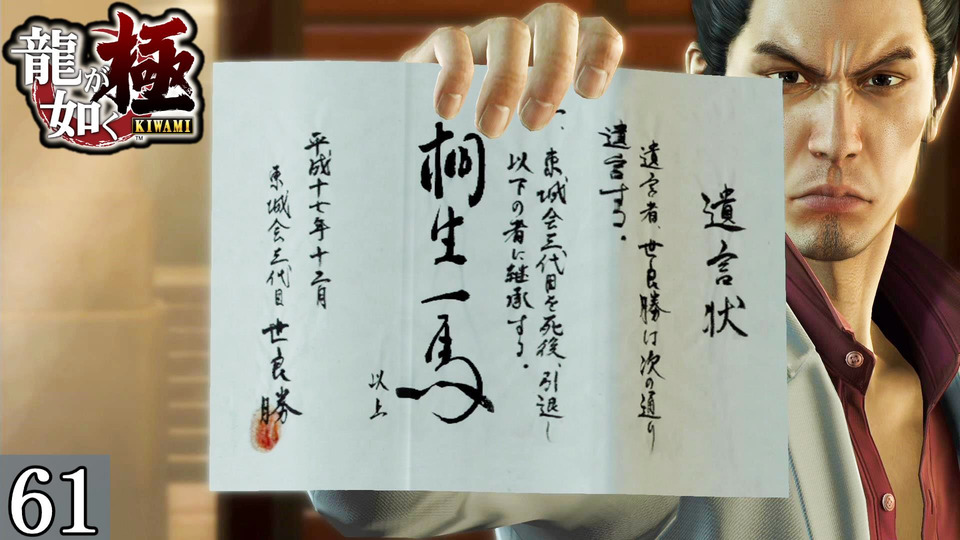 龍が如く
極
KIWAMI
TM
遺言状
遺言者、世良勝は次の通り
遺言する。
一、東城会三代目を死後、引退し
以下の者に継承する。
桐生一馬
以上
平成十七年十二月
東城会三代目 世良勝
61